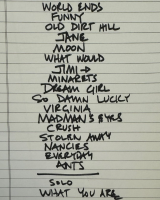 WORLD ENDS
FUNNY
OLD DIRT HILL
JANE
MOON
WHAT WOULD
JIMI →
MINARETS
DREAM GIRL
SO DAMN LUCKY
VIRGINIA
MADMAN'S EYES
CRUSH
STOLEN AWAY
NANCIES
EVERYDAY
ANTS
SOLO
WHAT YOU ARE